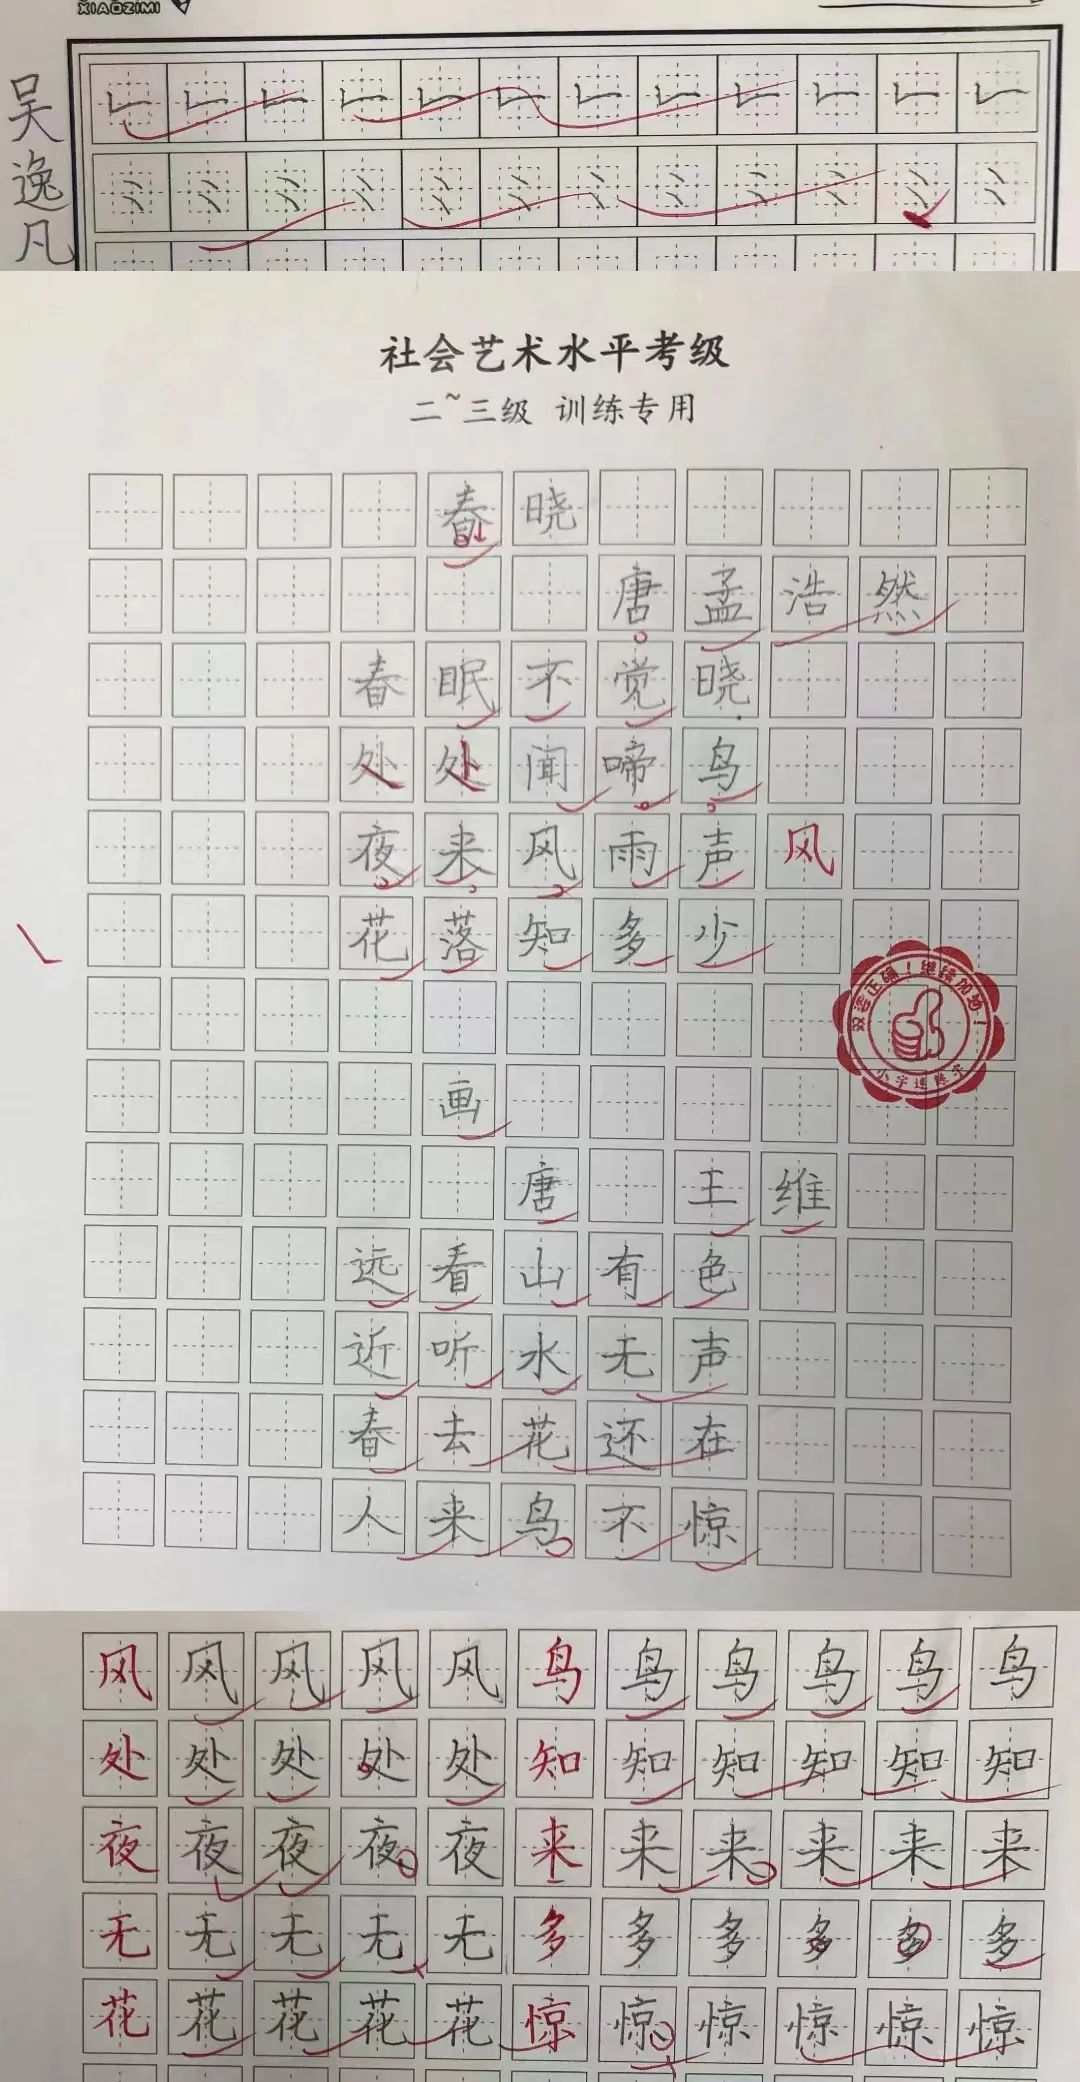 XIAOZIMI
吴逸凡
社会艺术水平考级
二~三级 训练专用
春晓
唐孟浩然
春眠不觉晓
处处闻啼鸟
夜来风雨声风
花落知多少
双姿正确！继续加油！
小字迷练字
画
唐 王维
远看山有色
近听水无声
春去花还在
人来鸟不惊
风风风风风鸟鸟鸟鸟鸟鸟
处处处处处知知知知知知
夜夜夜夜夜来来来来来来
无无无无无多多多多多多
花花花花花惊惊惊惊惊惊